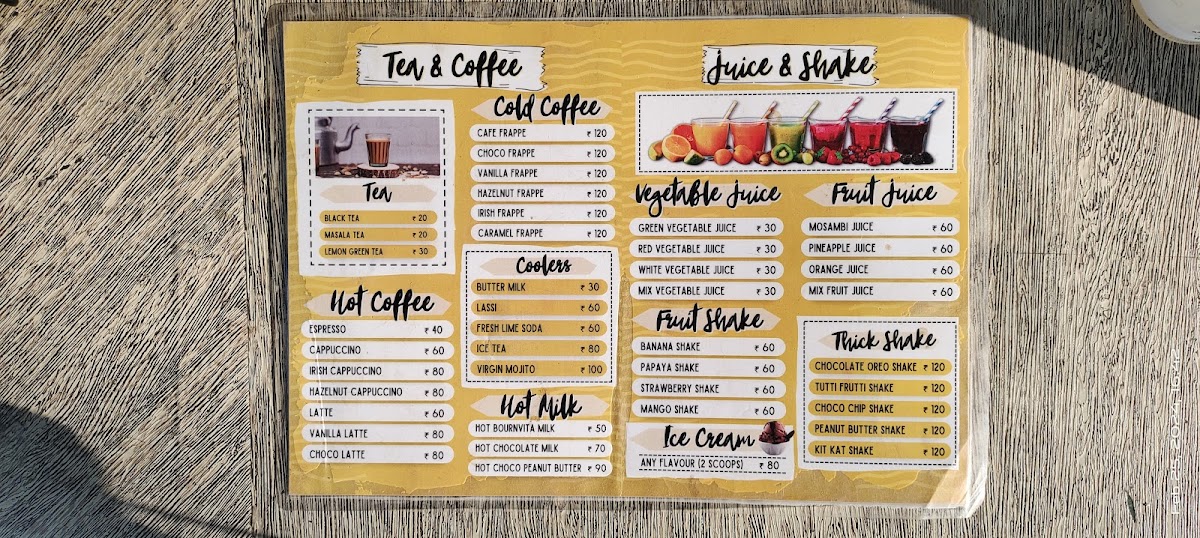 Tea & Coffee
Tea
BLACK TEA ₹ 20
MASALA TEA ₹ 20
LEMON GREEN TEA ₹ 30
Hot Coffee
ESPRESSO ₹ 40
CAPPUCCINO ₹ 60
IRISH CAPPUCCINO ₹ 80
HAZELNUT CAPPUCCINO ₹ 80
LATTE ₹ 60
VANILLA LATTE ₹ 80
CHOCO LATTE ₹ 80
Cold Coffee
CAFE FRAPPE ₹ 120
CHOCO FRAPPE ₹ 120
VANILLA FRAPPE ₹ 120
HAZELNUT FRAPPE ₹ 120
IRISH FRAPPE ₹ 120
CARAMEL FRAPPE ₹ 120
Coolers
BUTTER MILK ₹ 30
LASSI ₹ 60
FRESH LIME SODA ₹ 60
ICE TEA ₹ 80
VIRGIN MOJITO ₹ 100
Hot Milk
HOT BOURNVITA MILK ₹ 50
HOT CHOCOLATE MILK ₹ 70
HOT CHOCO PEANUT BUTTER ₹ 90
Juice & Shake
Vegetable Juice
GREEN VEGETABLE JUICE ₹ 30
RED VEGETABLE JUICE ₹ 30
WHITE VEGETABLE JUICE ₹ 30
MIX VEGETABLE JUICE ₹ 30
Fruit Shake
BANANA SHAKE ₹ 60
PAPAYA SHAKE ₹ 60
STRAWBERRY SHAKE ₹ 60
MANGO SHAKE ₹ 60
Ice Cream
ANY FLAVOUR (2 SCOOPS) ₹ 80
Fruit Juice
MOSAMBI JUICE ₹ 60
PINEAPPLE JUICE ₹ 60
ORANGE JUICE ₹ 60
MIX FRUIT JUICE ₹ 60
Thick Shake
CHOCOLATE OREO SHAKE ₹ 120
TUTTI FRUTTI SHAKE ₹ 120
CHOCO CHIP SHAKE ₹ 120
PEANUT BUTTER SHAKE ₹ 120
KIT KAT SHAKE ₹ 120